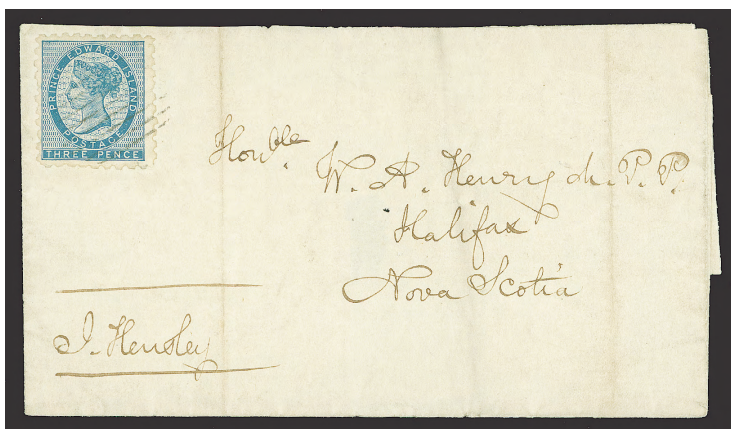 PRINCE EDWARD ISLAND
POSTAGE
THREE PENCE
Honble. W. A. Henry M.P.P.
Halifax
Nova Scotia
J. Hensley